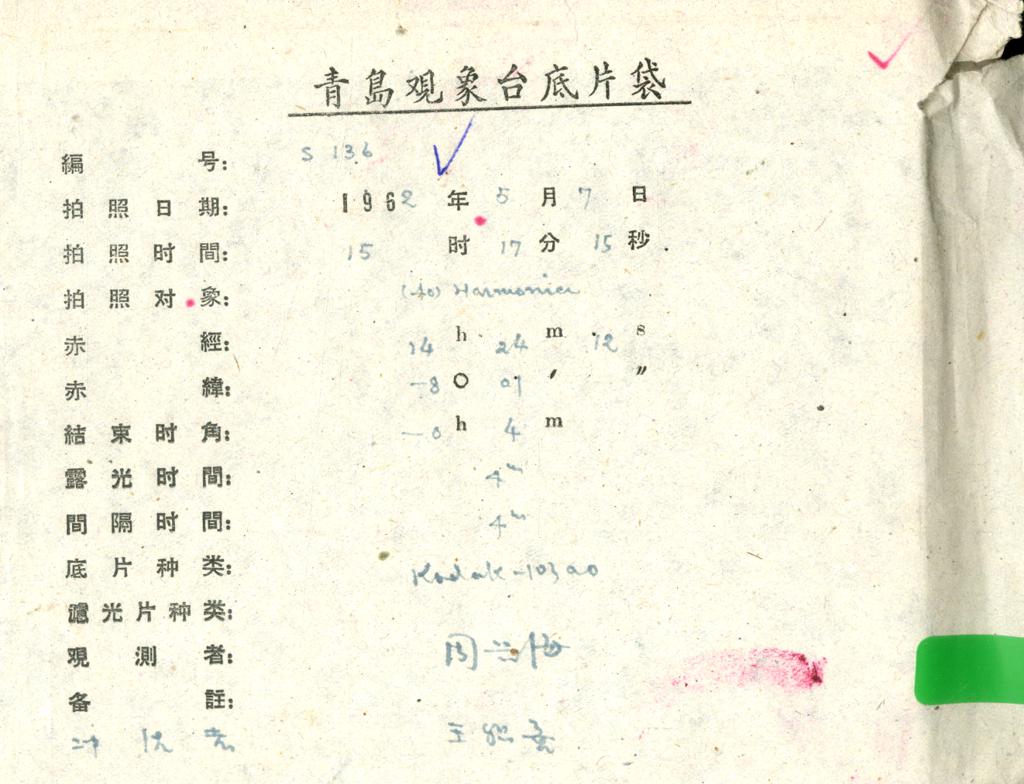 青島观象台底片袋
編号： S 136
拍照日期： 1962年5月7日
拍照时間： 15时17分15秒
拍照对象： (40) Harmonia
赤經： 14h 24m 12s
赤緯： -8° 07′ ″
結束时角： -0h 4m
露光时間： 4m
間隔时間： 4m
底片种类： Kodak-103aO
濾光片种类：
观測者： 周兴海
备註：
冲洗者 王熙